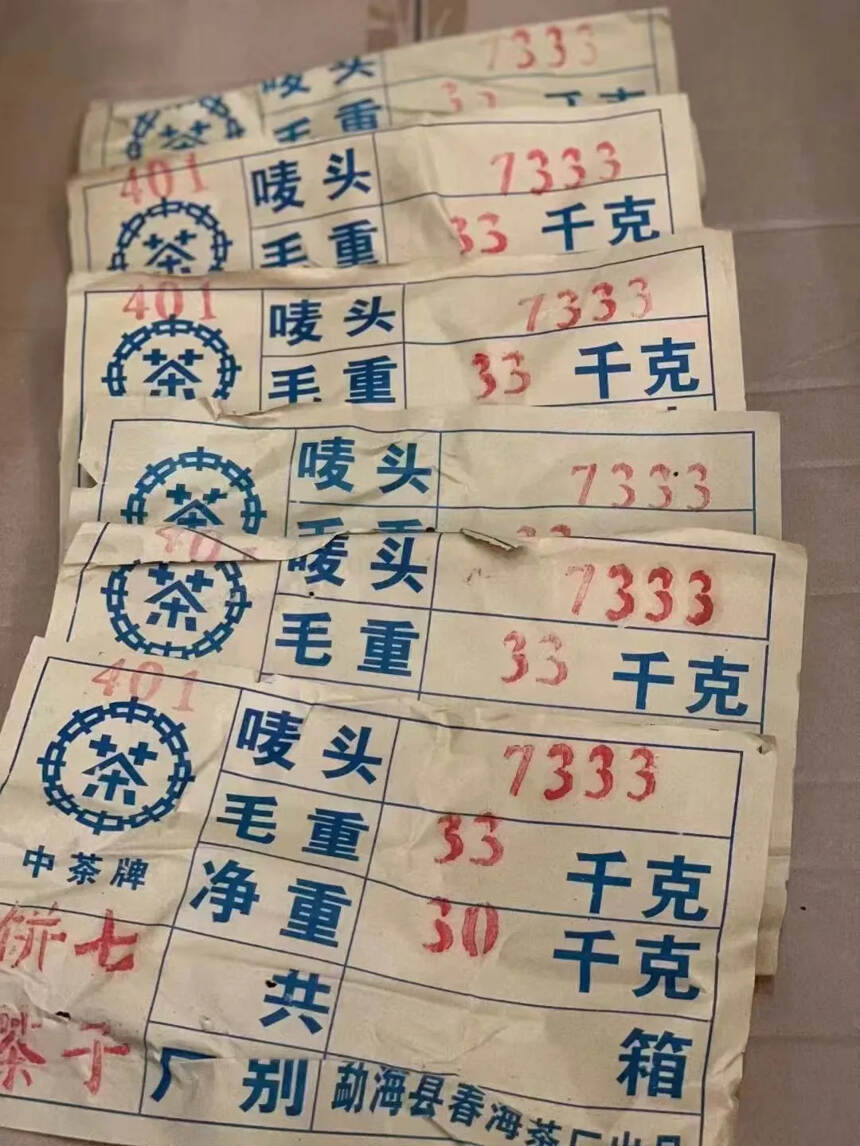 唛头 7333
毛重 33 千克
401
茶
唛头 7333
毛重 33 千克
401
茶
唛头 7333
毛重 33 千克
茶
唛头 7333
401
茶
唛头 7333
毛重 33 千克
401
茶
唛头 7333
毛重 33 千克
中茶牌
净重 30 千克
饼七
共 箱
茶子
厂别 勐海县春海茶厂出品